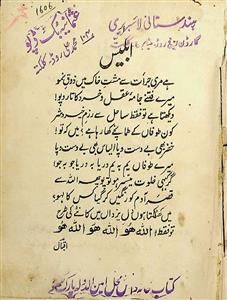 1606
ہندستانی لائبریری
گارڈن ریچ روڈ
عثمانیہ بک ڈپو
ابلیس
ہے مری جرأت سے مشتِ خاک میں ذوقِ نمو
میرے فتنے جامۂ عقل و خرد کا تار و پو!
دیکھتا ہے تو فقط ساحل سے رزمِ خیر و شر
کون طوفاں کے طمانچے کھا رہا ہے؟ میں کہ تو؟
خضر بھی بے دست و پا الیاس بھی بے دست و پا
میرے طوفاں یم بہ یم دریا بہ دریا جو بہ جو
گر کبھی خلوت میسر ہو تو پوچھ اللہ سے
قصۂ آدم کو رنگیں کر گیا کس کا لہو؟
میں کھٹکتا ہوں دلِ یزداں میں کانٹے کی طرح
تو فقط! اللہ ھو اللہ ھو اللہ ھو
اقبال